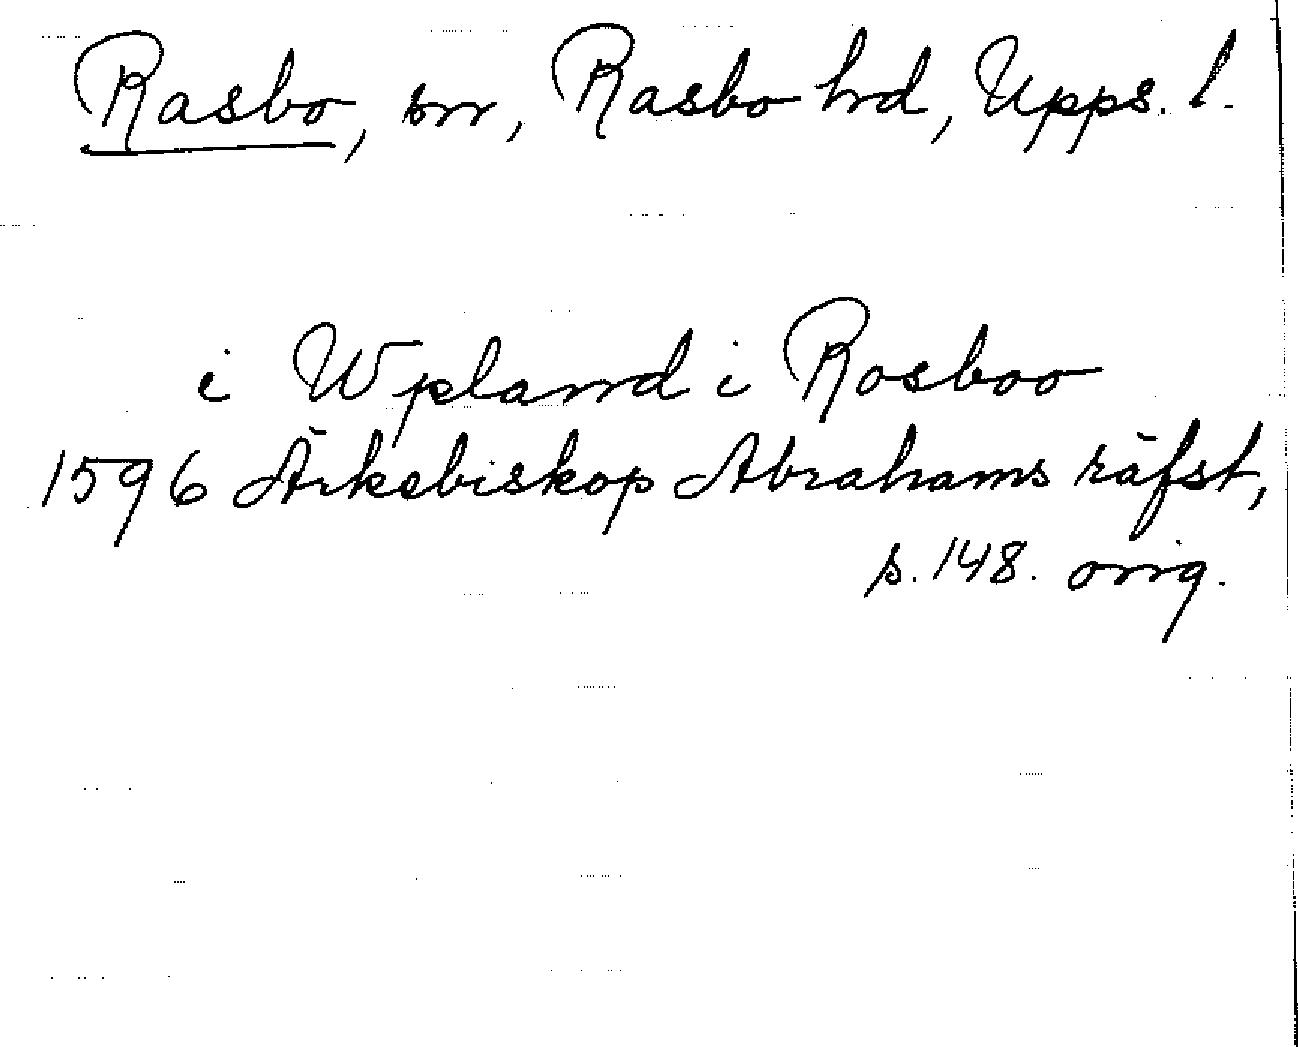 Rasbo, sn, Rasbo hd, Upps. l.
i Wpland i Rosboo
1596 Ärkebiskop Abrahams räfst,
s. 148. orig.